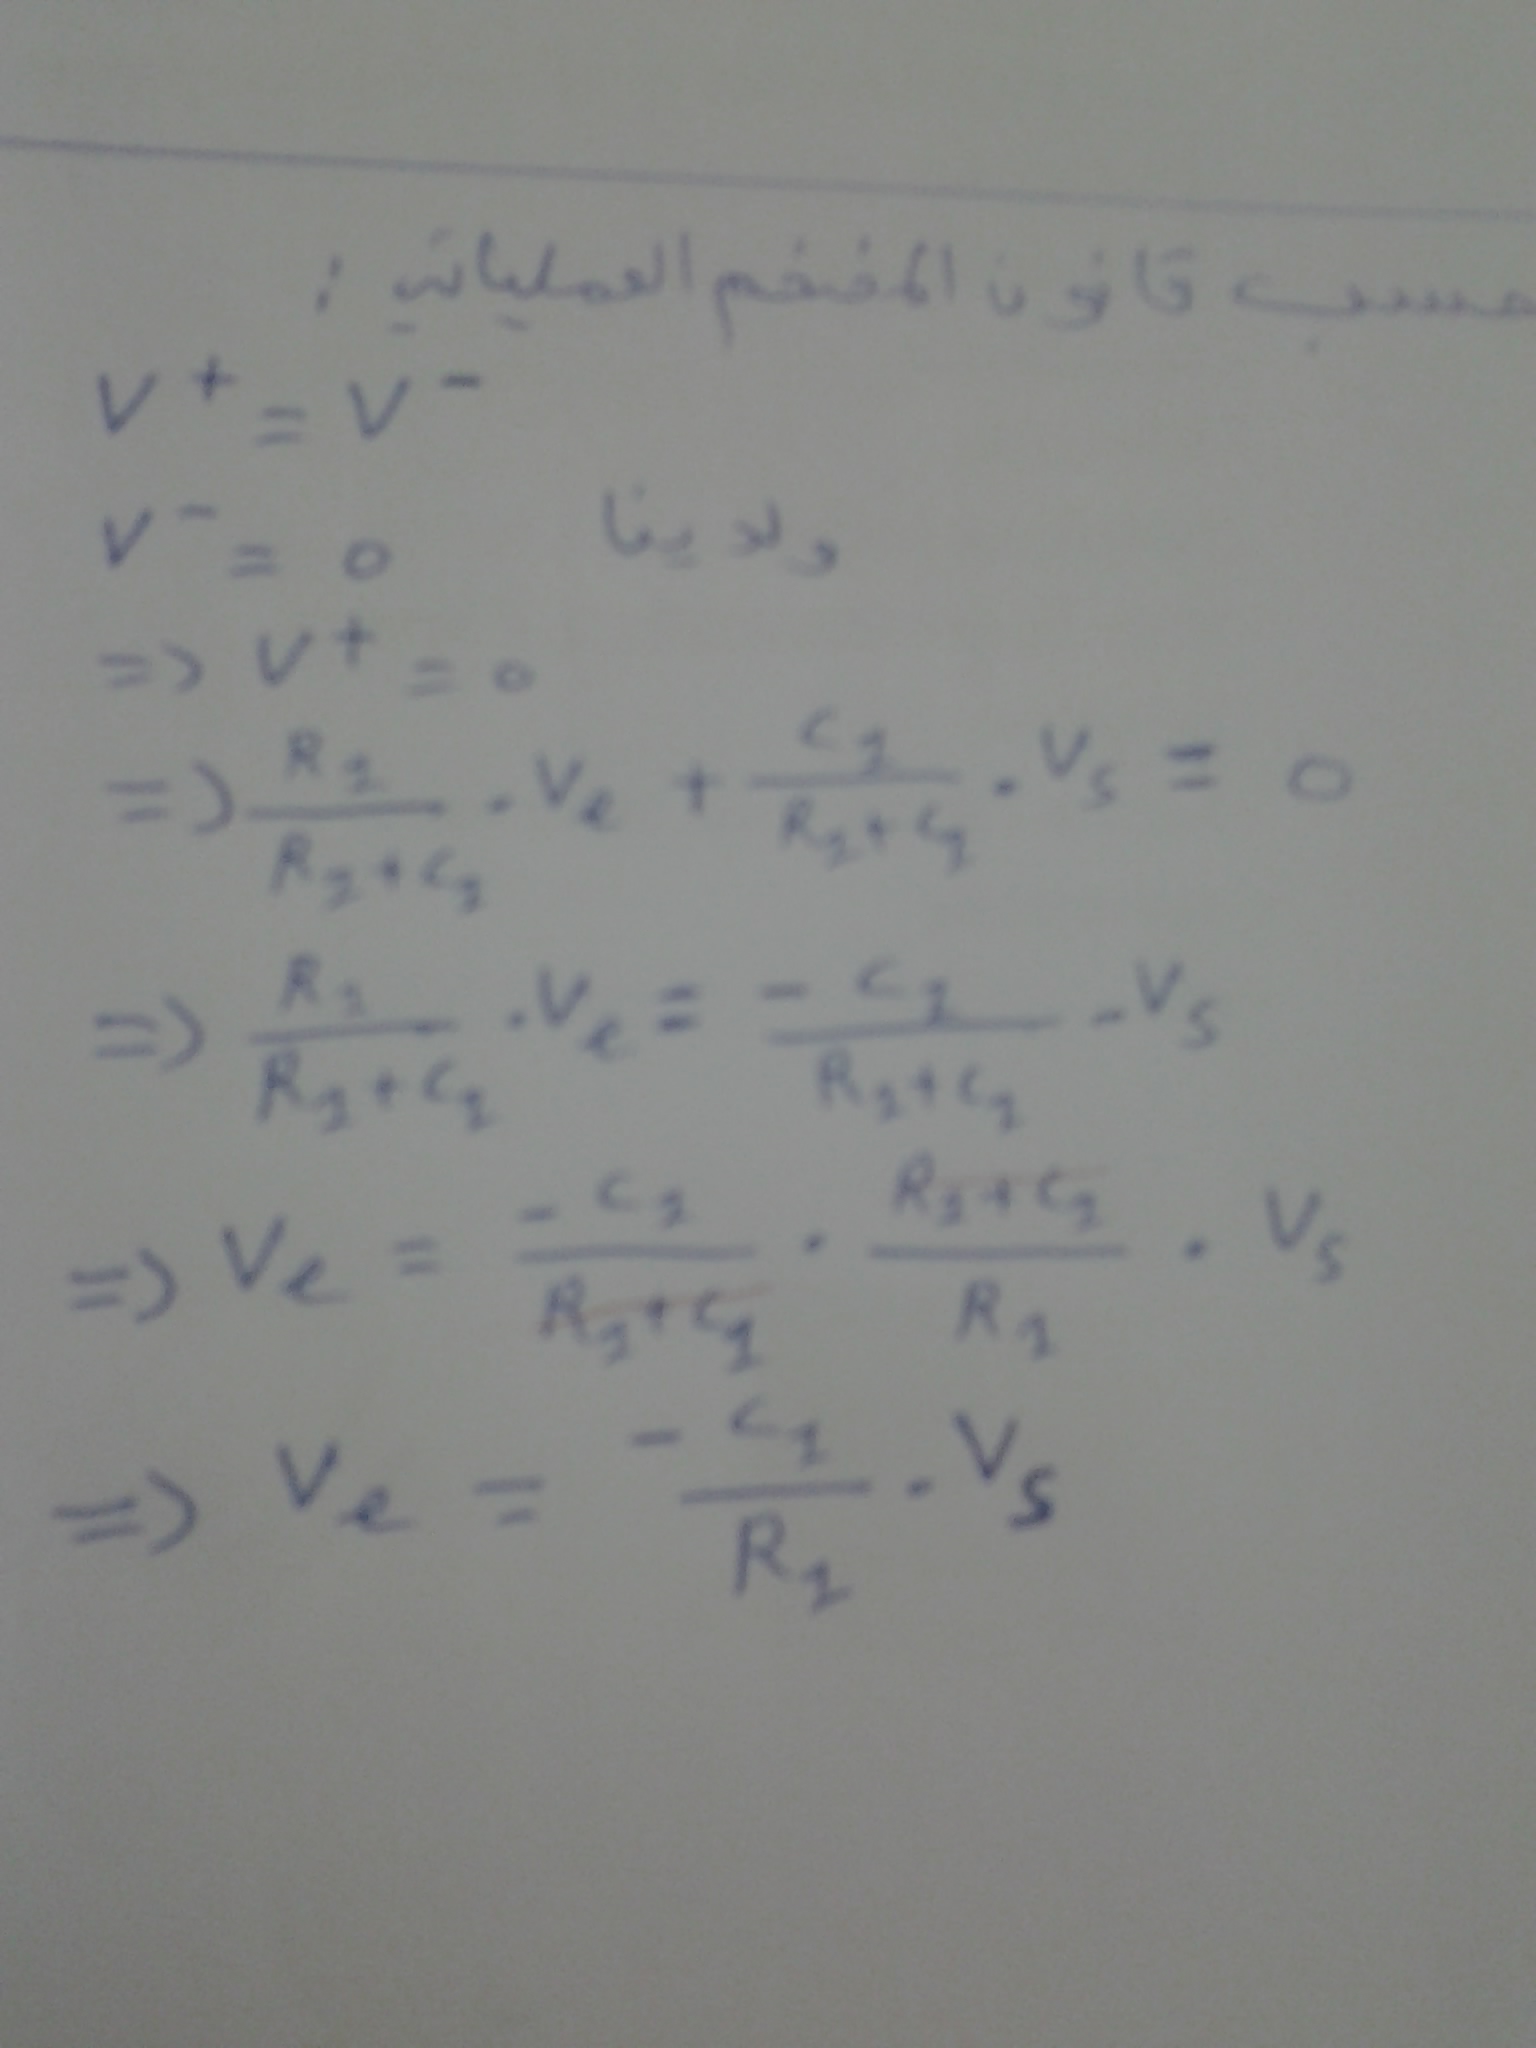 حسب قانون المضخم العملياتي :
V⁺ = V⁻
V⁻ = 0 ولدينا
=> V⁺ = 0
=> R₁/(R₁+C₁) . Ve + C₁/(R₁+C₁) . Vs = 0
=> R₁/(R₁+C₁) . Ve = -C₁/(R₁+C₁) . Vs
=> Ve = -C₁/(R₁+C₁) . (R₁+C₁)/R₁ . Vs
=> Ve = -C₁/R₁ . Vs